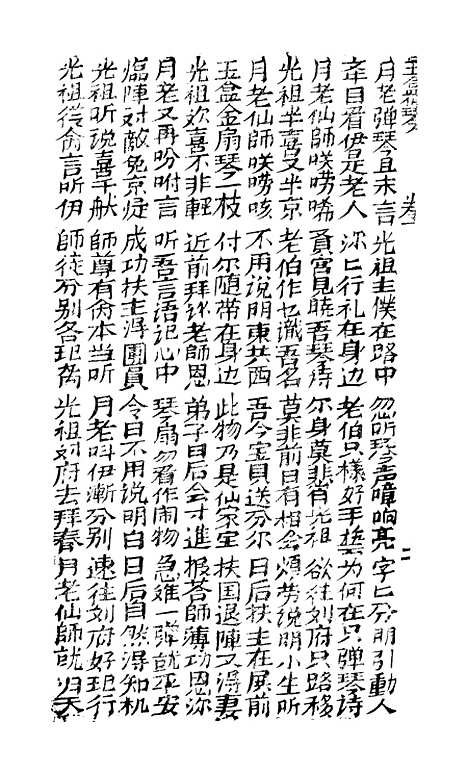 卷一 二
月老弹琴且未言 光祖主僕在路中 忽听琴声嘹响亮 字匕分明引動人
夲目看伊是老人 沵匕行礼在身边 老伯只樣好手藝 为何在只弹琴诗
月老仙師咲嘮唏 見曉吾琴诗 尔身莫非肖光祖 欲往刘府只路移
光祖半喜又半京 老伯作乜識吾名 莫非前日有相会 煩劳说明小生听
月老仙師咲嘮咳 不用说明東共西 吾今宝貝送分尔 日后扶主在展前
玉盒金扇琴一枝 付尔随带在身边 此物乃是仙家宝 扶国退陣又得妻
光祖欢喜不非輕 近前拜老師恩 弟子日后会才進 报荅師薄功恩沵
月老又再吩咐言 听吾言語记心中 琴扇勿看作闹物 急难一弹就平安
臨陣对敵免京疑 成功扶主淂團員 今日不用说明白 日后自然淂知机
光祖听说喜千般 師尊有命本当听 月老叫伊漸分别 速往刘府好起行
光祖従命言听伊 師徒分别各起离 光祖刘府去拜春 月老仙師就归天